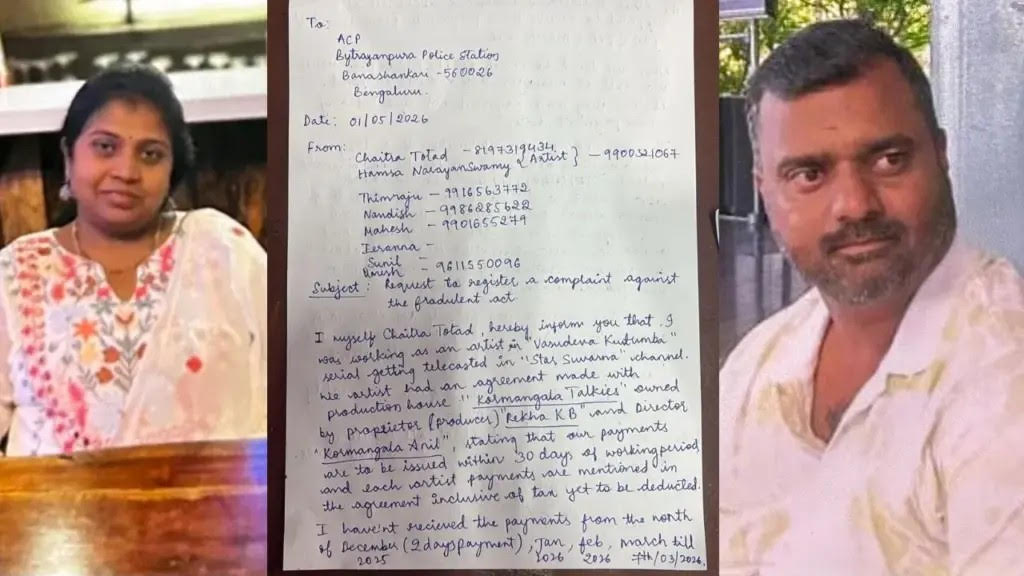 To:
ACP
Bytrayanpura Police Station
Banashankari - 560026
Bengaluru.
Date: 01/05/2026
From:
Chaitra Totad - 8197319434
Hamsa NarayanSwamy Artist } - 9900321067
Thimraju - 9916563772
Nandish - 9986285622
Mahesh - 9901655279
Ieranna -
Sunil
Umesh - 9611550096
Subject: Request to register a complaint against
the fradulent act
I myself Chaitra Totad, hereby inform you that I
was working as an artist in "Vasudeva Kutumba"
serial getting telecasted in "Star Suvarna" channel.
We artist had an agreement made with
production house "Kormangala Talkies" owned
by proprietor (producer) "Rekha K.B" and Director
"Kormangala Anil" stating that our payments
are to be issued within 30 days of working period
and each artist payments are mentioned in
the agreement inclusive of tax yet to be deducted.
I haven't recieved the payments from the month
of December (2 days payment), Jan, feb, march till
2025 2026 2026 7th/03/2026,